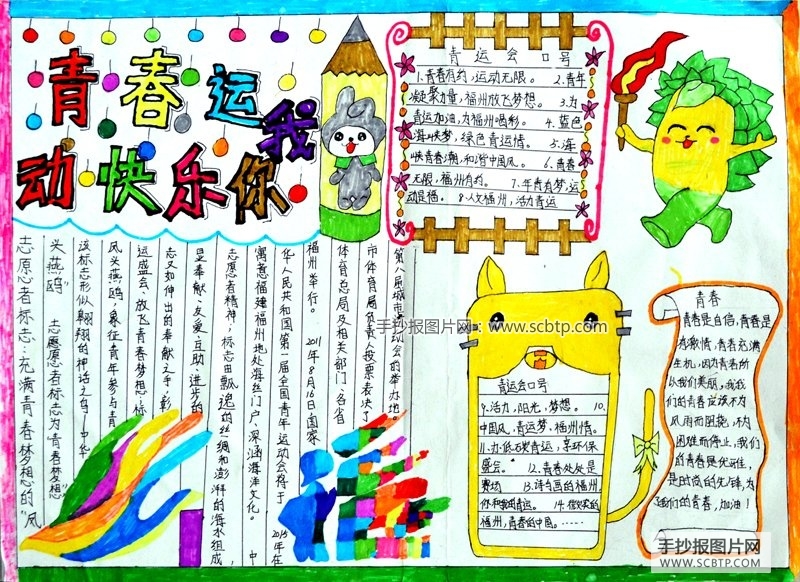 青春运我
动快乐你
青运会口号
1.青春有约,运动无限。 2.青年
凝聚力量,福州放飞梦想。 3.为
青运加油,为福州喝彩。 4.蓝色
海峡梦,绿色青运情。 5.海
峡青春潮,和谐中国风。 6.青春
无限,福州有约。 7.年青有梦,运
动是福。 8.人文福州,活力青运
志愿者标志:充满青春梦想的"凤
头燕鸥" 志愿者标志为"青春梦想"
该标志形似翱翔的神话之鸟,中华
凤头燕鸥,象征青年参与青
运盛会、放飞青春梦想;标
志又如伸出的奉献之手,彰
显奉献、友爱、互助、进步的
志愿者精神;标志由飘逸的丝绸和澎湃的海水组成,
寓意福建福州地处海丝门户、深涵海洋文化。 中
华人民共和国第一届全国青年运动会将于2015年在
福州举行。 2011年8月16日国家
体育总局及相关部门、各省
市体育局负责人投票表决了
第八届城市运动会的举办地。
手抄报图片网:www.scbtp.com
青运会口号
9.活力,阳光,梦想。 10.
中国风,青运梦,福州情。
11.办低碳青运,享环保
盛会。 12.青春处处是
赛场 13.诗与画的福州,
你和我的青运。 14.微笑的
福州,青春的中国。……
青春
青春是自信,青春是
激情,青春充满
生机,因为青春所
以我们美丽,我
们的青春应该不为
风雨而阻挠,不为
困难而停止,我们
的青春是优雅,
是时尚的先锋,为
我们的青春,加油!
手抄报图片网
WWW.SCBTP.COM